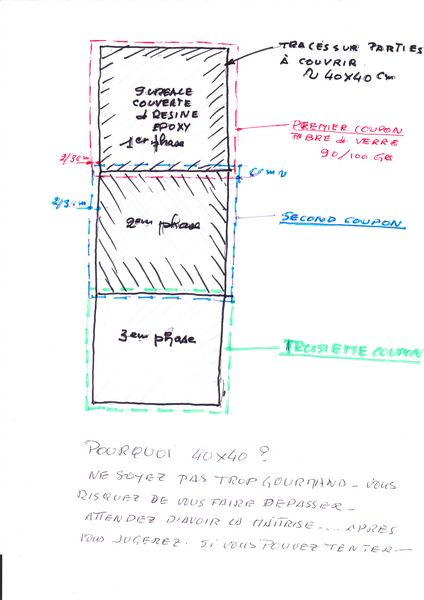 TRACÉS SUR PARTIES
À COUVRIR
~ 40x40 cm
SURFACE
COUVERTE
d RESINE
EPOXY
1er phase
PREMIER COUPON
FIBRE de VERRE
90/100 GRS
2/3 cm
2/3 cm
2em phase
SECOND COUPON
3em phase
TROISIEME COUPON
POURQUOI 40x40 ?
NE SOYEZ PAS TROP GOURMAND - VOUS
RISQUEZ DE VOUS FAIRE DEPASSER -
ATTENDEZ D'AVOIR LA MAÎTRISE .... APRES
VOUS JUGEREZ. SI VOUS POUVEZ TENTER -